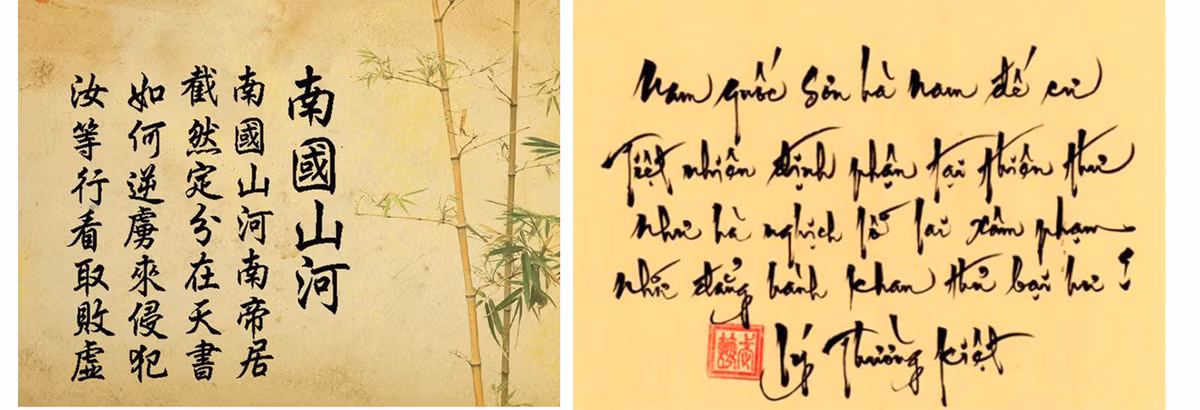 南國山河
南國山河南帝居
截然定分在天書
如何逆虜來侵犯
汝等行看取敗虛
Nam quốc Sơn hà Nam đế cư
Tiệt nhiên định phận tại thiên thư
Như hà nghịch lỗ lai xâm phạm
Nhữ đẳng hành khan thủ bại hư !
Lý Thường Kiệt